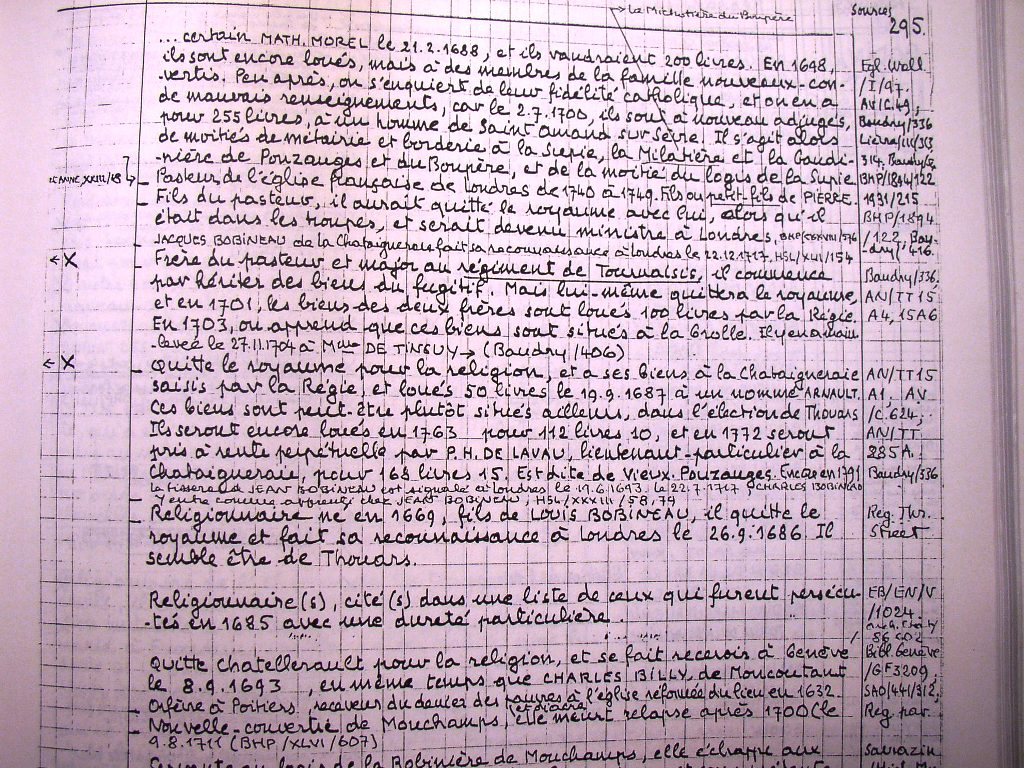 La Michotière du Boupère
Sources
295.
... certain MATH. MOREL le 21.2.1688, et ils vaudraient 200 livres. En 1698,
ils sont encore loués, mais à des membres de la famille nouveaux-con-
-vertis. Peu après, on s'enquiert de leur fidélité catholique, et on en a
de mauvais renseignements, car le 2.7.1700, ils sont à nouveau adjugés,
pour 255 livres, à un homme de Saint Amand sur Sèvre. Il s'agit alors
de moitiés de métairie et borderie à la Supie, la Milatière et la Gaudi-
-nière de Pouzauges et du Boupère, et de la moitié du logis de la Supie
Pasteur de l'église française de Londres de 1740 à 1749. Fils ou petit-fils de PIERRE.
Fils du pasteur, il aurait quitté le royaume avec lui, alors qu'il
était dans les troupes, et serait devenu ministre à Londres,
JACQUES BOBINEAU de la Chataigneraie fait sa reconnaissance à Londres le 22.12.1717, HSL/XVI/154
Frère du pasteur et major au régiment de Tournaisis, il commence
par hériter des biens du fugitif. Mais lui-même quittera le royaume,
et en 1701, les biens des deux frères sont loués 100 livres par la Régie.
En 1703, on apprend que ces biens sont situés à la Grolle. Il y en a main
-levée le 27.11.1704 à Mme DE TINGUY (Baudry/406)
Quitte le royaume pour la religion, et a ses biens à la Chataigneraie
saisis par la Régie, et loués 50 livres le 19.9.1687 à un nommé ARNAULT.
Ces biens sont peut-être plutôt situés ailleurs, dans l'élection de Thouars
Ils seront encore loués en 1763 pour 112 livres 10, et en 1772 seront
pris à rente perpétuelle par P.H. DE LAVAU, lieutenant-particulier à la
Chataigneraie, pour 168 livres 15. Est dite de Vieux-Pouzauges. Encore en 1791
JEAN BOBINEAU est signalé à Londres le 11.6.1693. Le 22.7.1717, CHARLES BOBINEAU
BOBINEAU, HSL/XXXIII/58,79
Religionnaire né en 1669, fils de LOUIS BOBINEAU, il quitte le
royaume et fait sa reconnaissance à Londres le 26.9.1686. Il
semble être de Thouars.
Religionnaire(s), cité(s) dans une liste de ceux qui furent persécu-
-tés en 1685 avec une dureté particulière.
Quitte Chatellerault pour la religion, et se fait recevoir à Genève
le 8.9.1693, en même temps que CHARLES BILLY, de Moncoutant
Orfèvre à Poitiers, receveur du denier des pauvres à l'église réformée du lieu en 1632.
et diacre
Nouvelle-convertie de Mouchamps, elle meurt relapse après 1700 (le
9.8.1711 (BHP/XLVI/607)
de la Bobinière de Mouchamps, elle échappe aux
Egl. Wall.
/I/97.
AV/C49,
Baudry/336
Lièvre/III/353
314, Baudry/
BHP/1894/122
1931/215
BHP/1894
/122, Bau-
-dry/416.
Baudry/336,
AN/TT15
A4, 15A6
AN/TT15
A1. AV
/C624,
AN/TT
885A.
Baudry/336
Reg. Thr.
Street
EB/EN/V
/1024
86 C02
Bibl. Genève
/GF3209,
SAO/441/312,
Reg. par.
Sarrazin